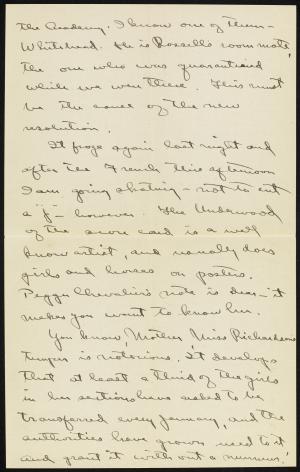 the Academy. I know one of them –
Whitehead. He is Rossell's room mate,
the one who was quarantined
while we were there. This must
be the cause of the new
resolution.
It froze again last night and
after the French this afternoon
I am going skating – not to cut
a "J" – however. The Underwood
of the score card is a well
know artist, and usually does
girls and horses on posters.
Peggy Chevalier's note is dear – it
makes you want to know her.
You know, Mother, Miss Richardson's
temper is notorious. It develops
that at least a third of the girls
in her sections have asked to be
transferred every January, and the
authorities have grown used to it
and grant it without a murmur.